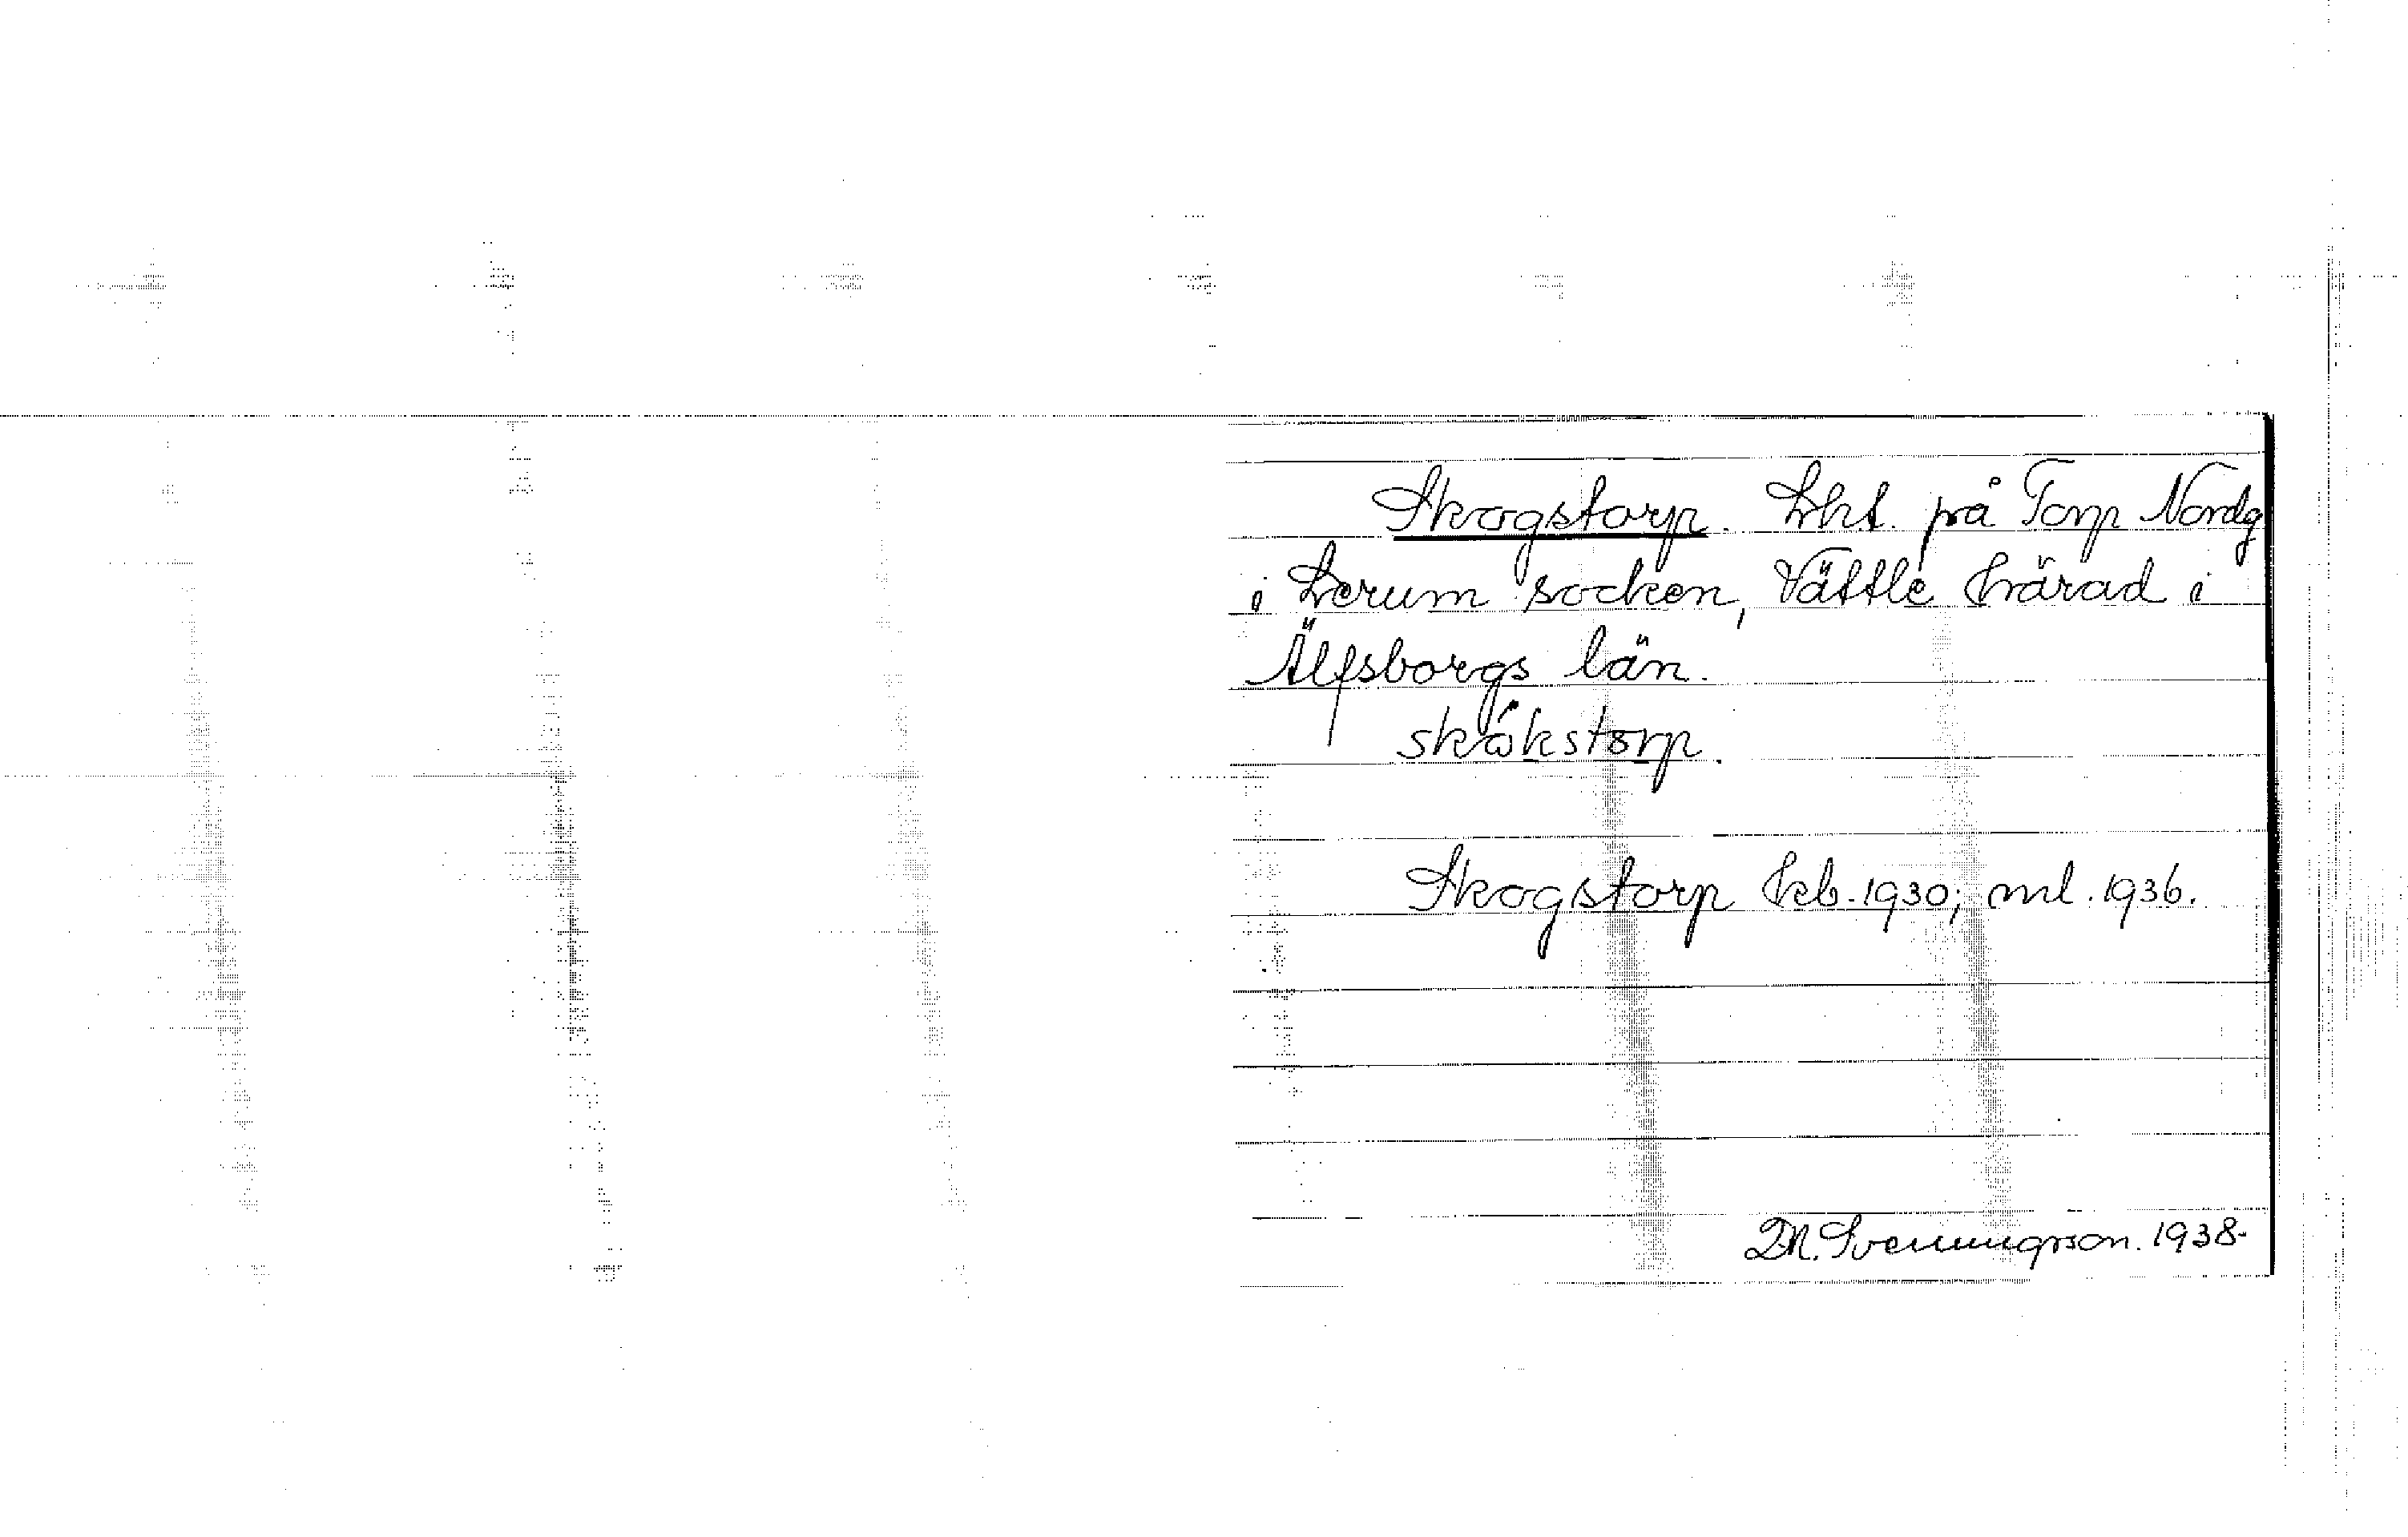 Skogstorp. Lht. på Torp Nordg
i Lerum socken, Vättle härad i
Älfsborgs län.
skòkstorp.
Skogstorp kb. 1930; ml. 1936.
D.N. Svenungsson. 1938.